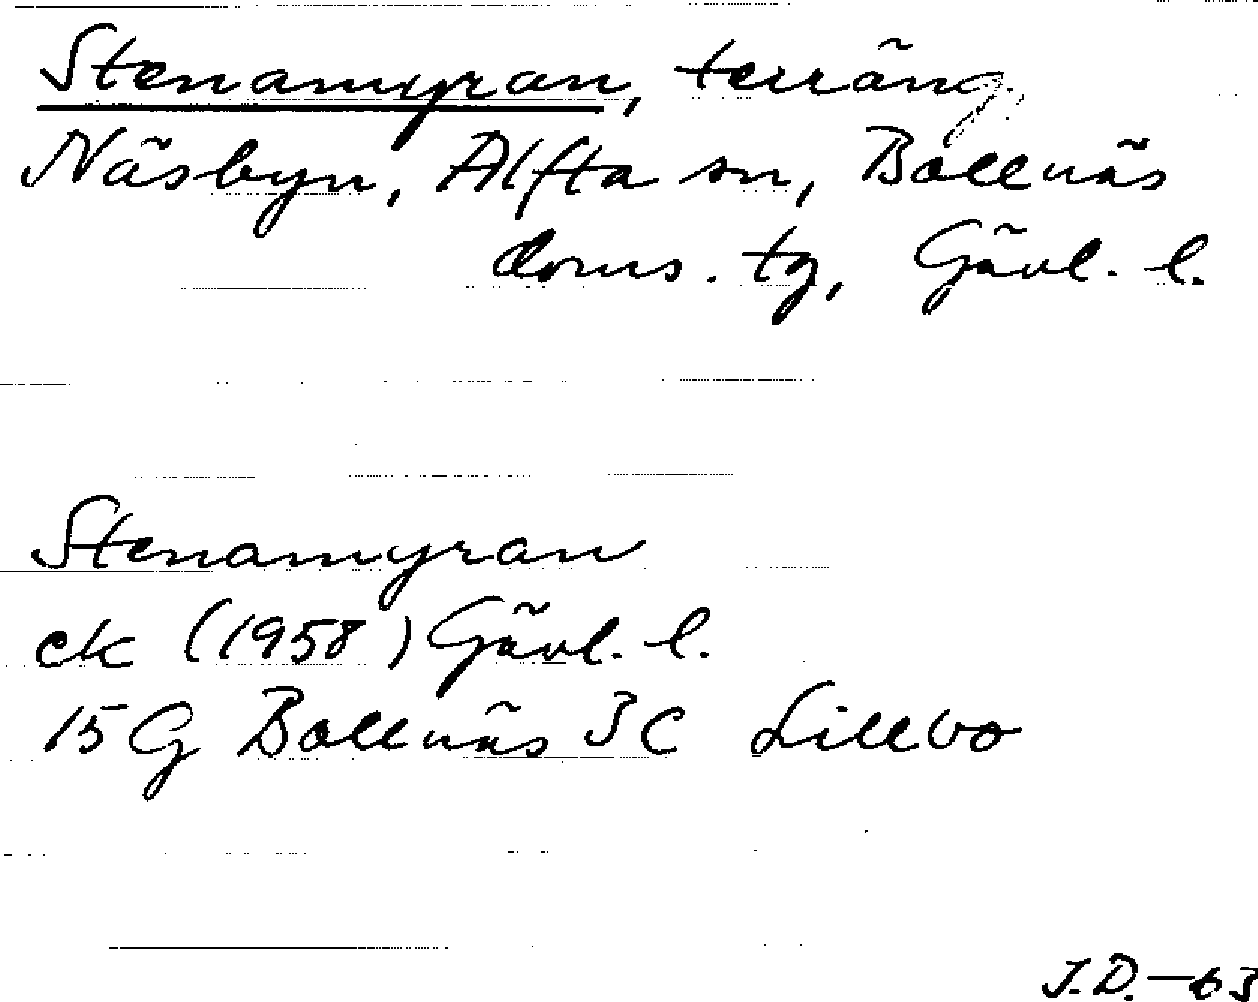 Stenamyran, terräng,
Näsbyn, Alfta sn, Bollnäs
doms. tg, Gävl. l.
Stenamyran
ek (1958) Gävl. l.
15 G Bollnäs 3 C Lillbo
J.D. - 63